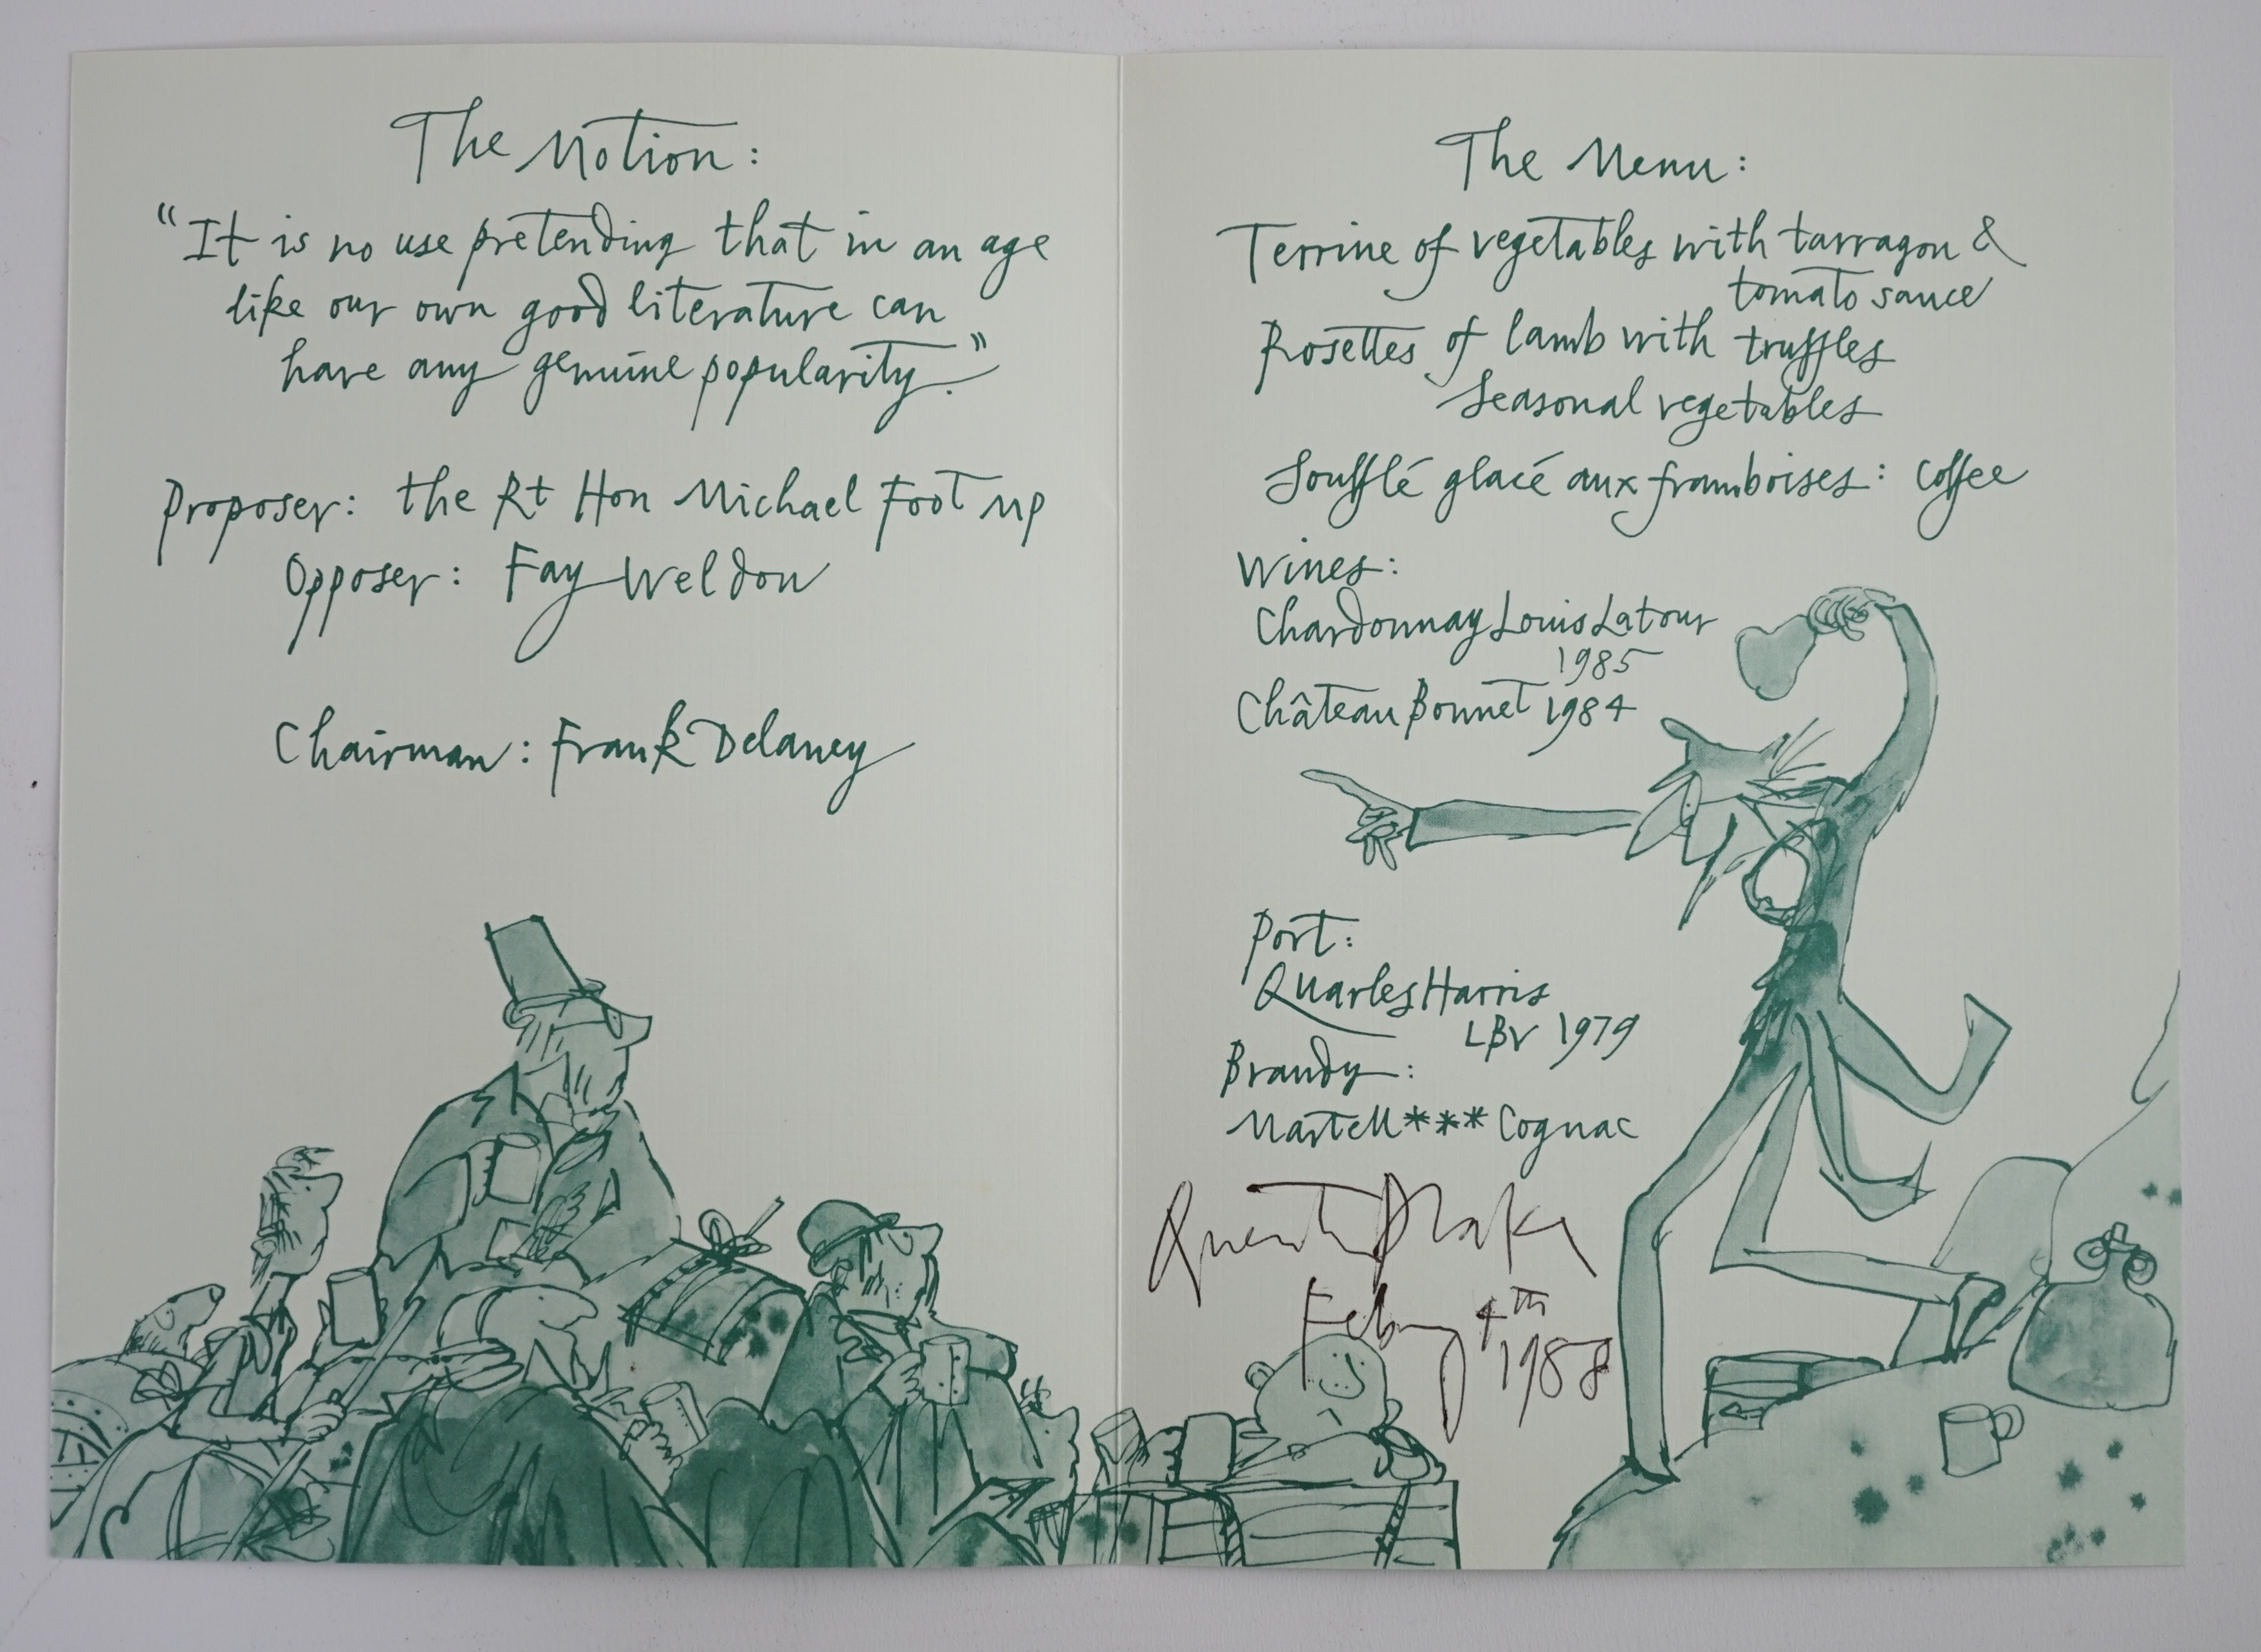 The Motion:
"It is no use pretending that in an age
like our own good literature can
have any genuine popularity."
Proposer: the Rt Hon Michael Foot MP
Opposer: Fay Weldon
Chairman: Frank Delaney
The Menu:
Terrine of vegetables with tarragon &
tomato sauce
Rosettes of lamb with truffles
Seasonal vegetables
Soufflé glacé aux framboises: Coffee
Wines:
Chardonnay Louis Latour
1985
Château Bonnet 1984
Port:
Quarles Harris
LBV 1979
Brandy:
Martell*** Cognac
Quentin Blake
Feby 4th
1988